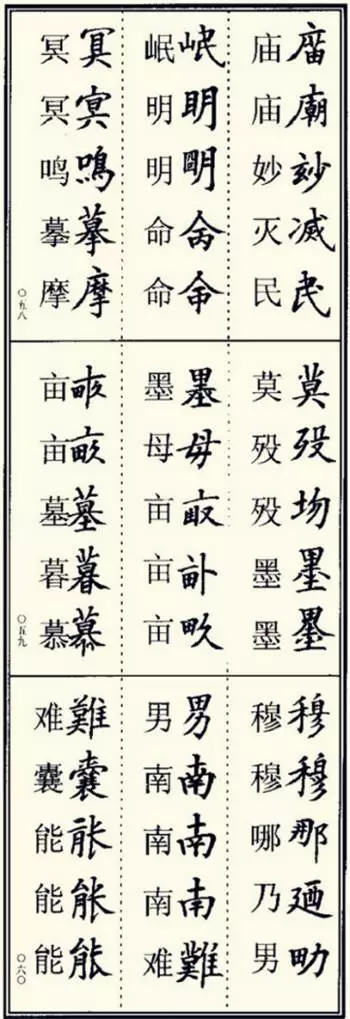 廟玅滅民
庙庙妙灭民
岷眀朙命
岷明明命命
冥鳴摹摩
冥冥鸣摹摩
〇五八
莫歿圽墨墨
莫殁殁墨墨
墨母畝
墨母亩亩亩
墓暮慕
亩亩墓暮慕
〇五九
穆穆那廼
穆穆哪乃男
男南南南難
男南南南难
難囊能
难囊能能能
〇六〇